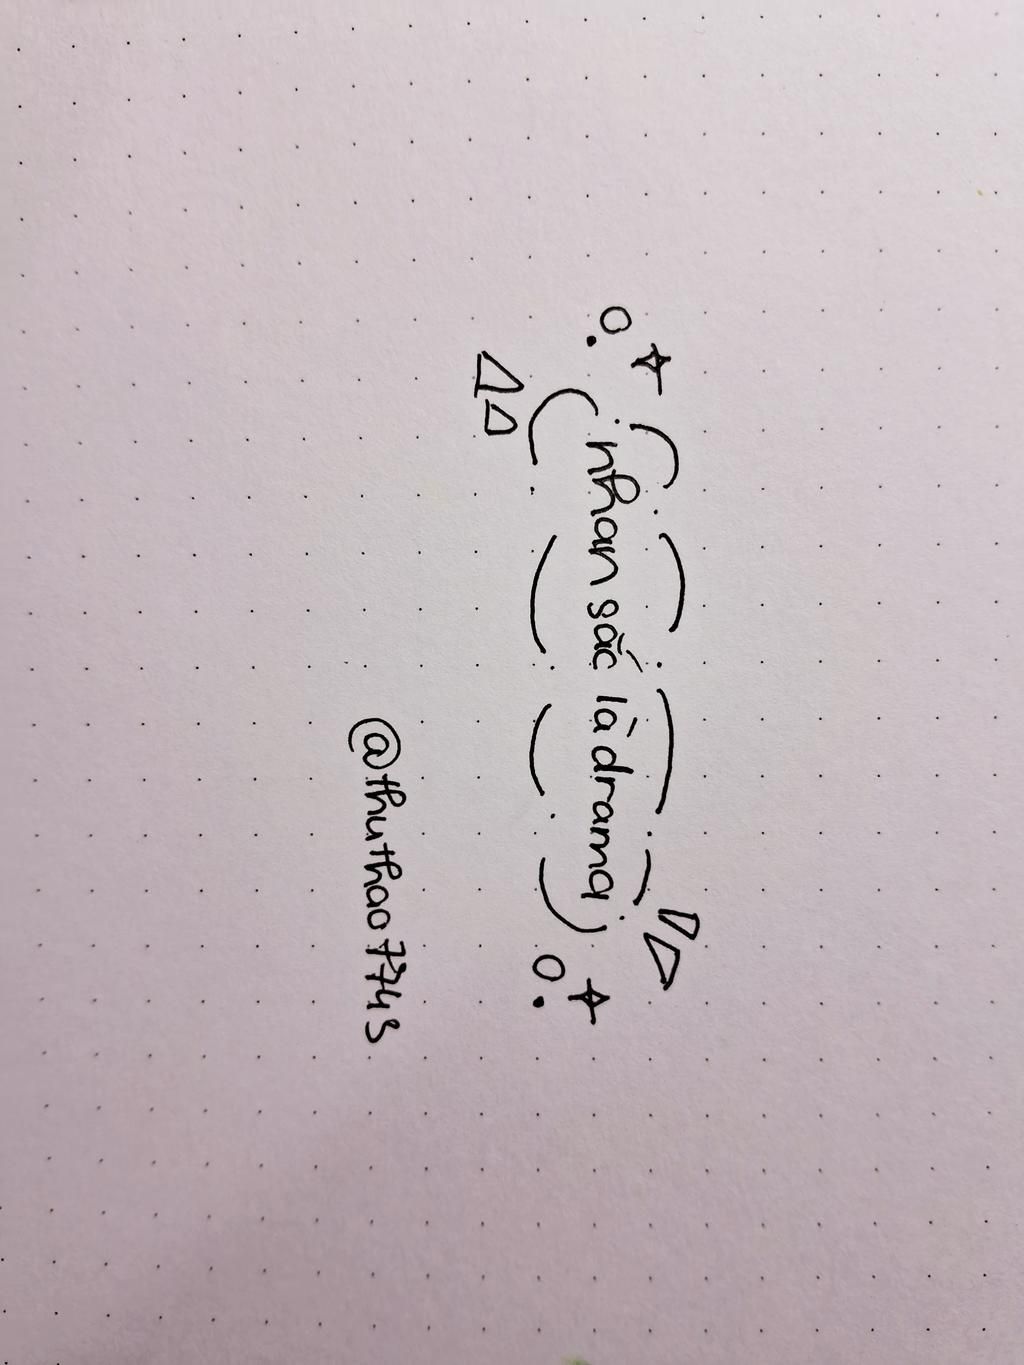 nhan sắc là drama
@thuthao7743